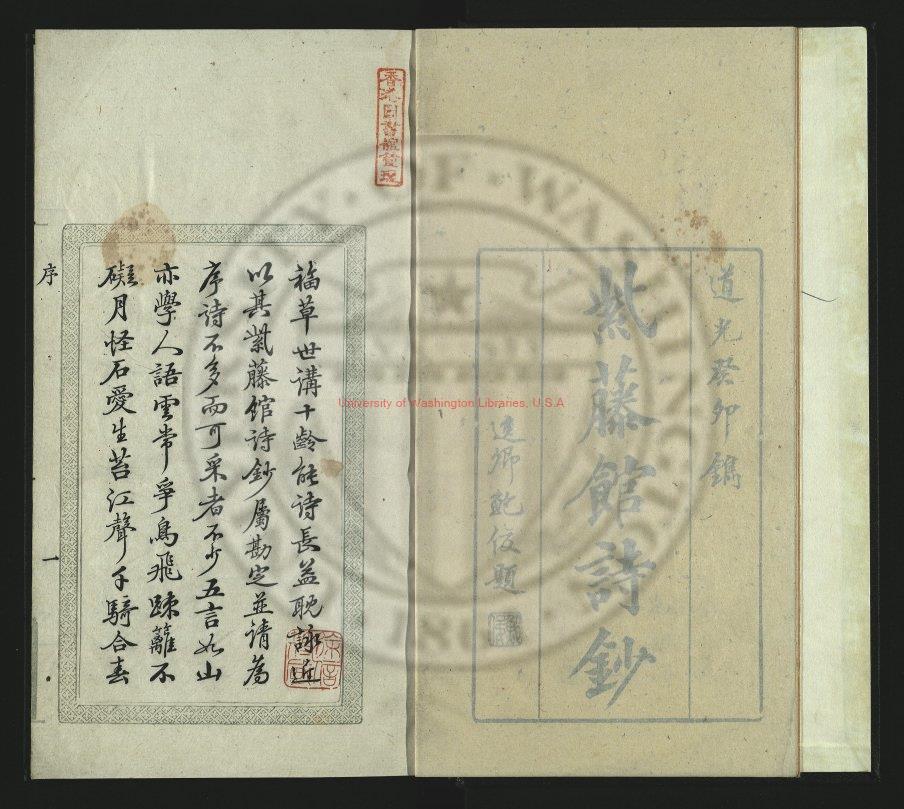 道光癸卯鐫
紫藤館詩鈔
逸卿鮑俊題
福草世講十齡能詩長益耽詠近
以其紫藤館詩鈔屬勘定並請為
序詩不多而可采者不少五言如山
亦學人語雲常爭鳥飛疎籬不
礙月怪石愛生苔江聲千騎合春
序
一
University of Washington Libraries, U.S.A
UNIVERSITY OF WASHINGTON